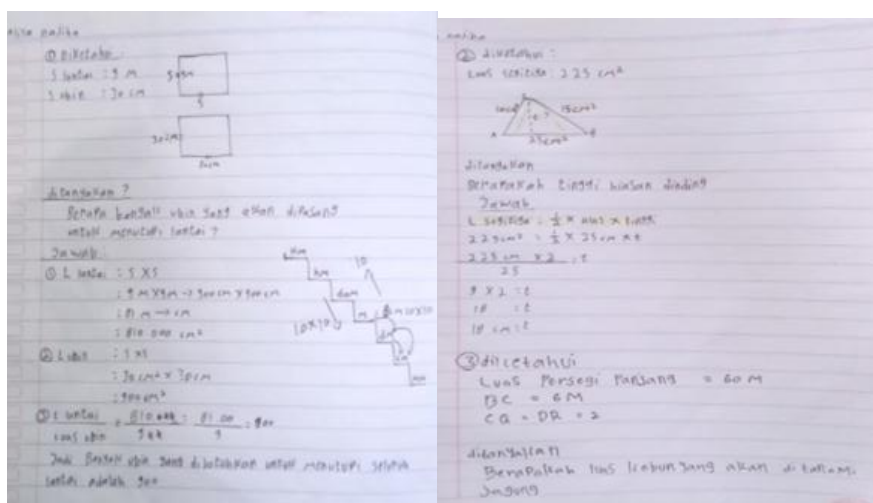 ① Diketahui:
S lantai : 9 m
S ubin : 30 cm
30 cm
ditanyakan?
Berapa banyak ubin yang akan dipasang
untuk menutupi lantai?
Jawab:
① L lantai : S x S
: 9 m x 9 m → 900 cm x 900 cm
: 81 m → cm
: 810.000 cm²
② L ubin : S x S
: 30 cm² x 30 cm
: 900 cm²
③ L lantai
luas ubin
= 900
Jadi Banyak ubin yang dibutuhkan untuk menutupi seluruh
lantai adalah 900
km
hm
dam
m
10
10x10
② diketahui:
Luas segitiga : 225 cm²
15 cm²
25 cm²
ditanyakan
Berapakah tinggi hiasan dinding
Jawab
L segitiga : ½ x alas x tinggi
225 cm² : ½ x 25 cm x t
225 cm x 2 : t
25
9 x 2 : t
18 : t
18 cm : t
③ diketahui
Luas Persegi Panjang = 60 M
BC = 6M
CQ = DR = 2
ditanyakan
Berapakah luas kebun yang akan di tanami
Jagung